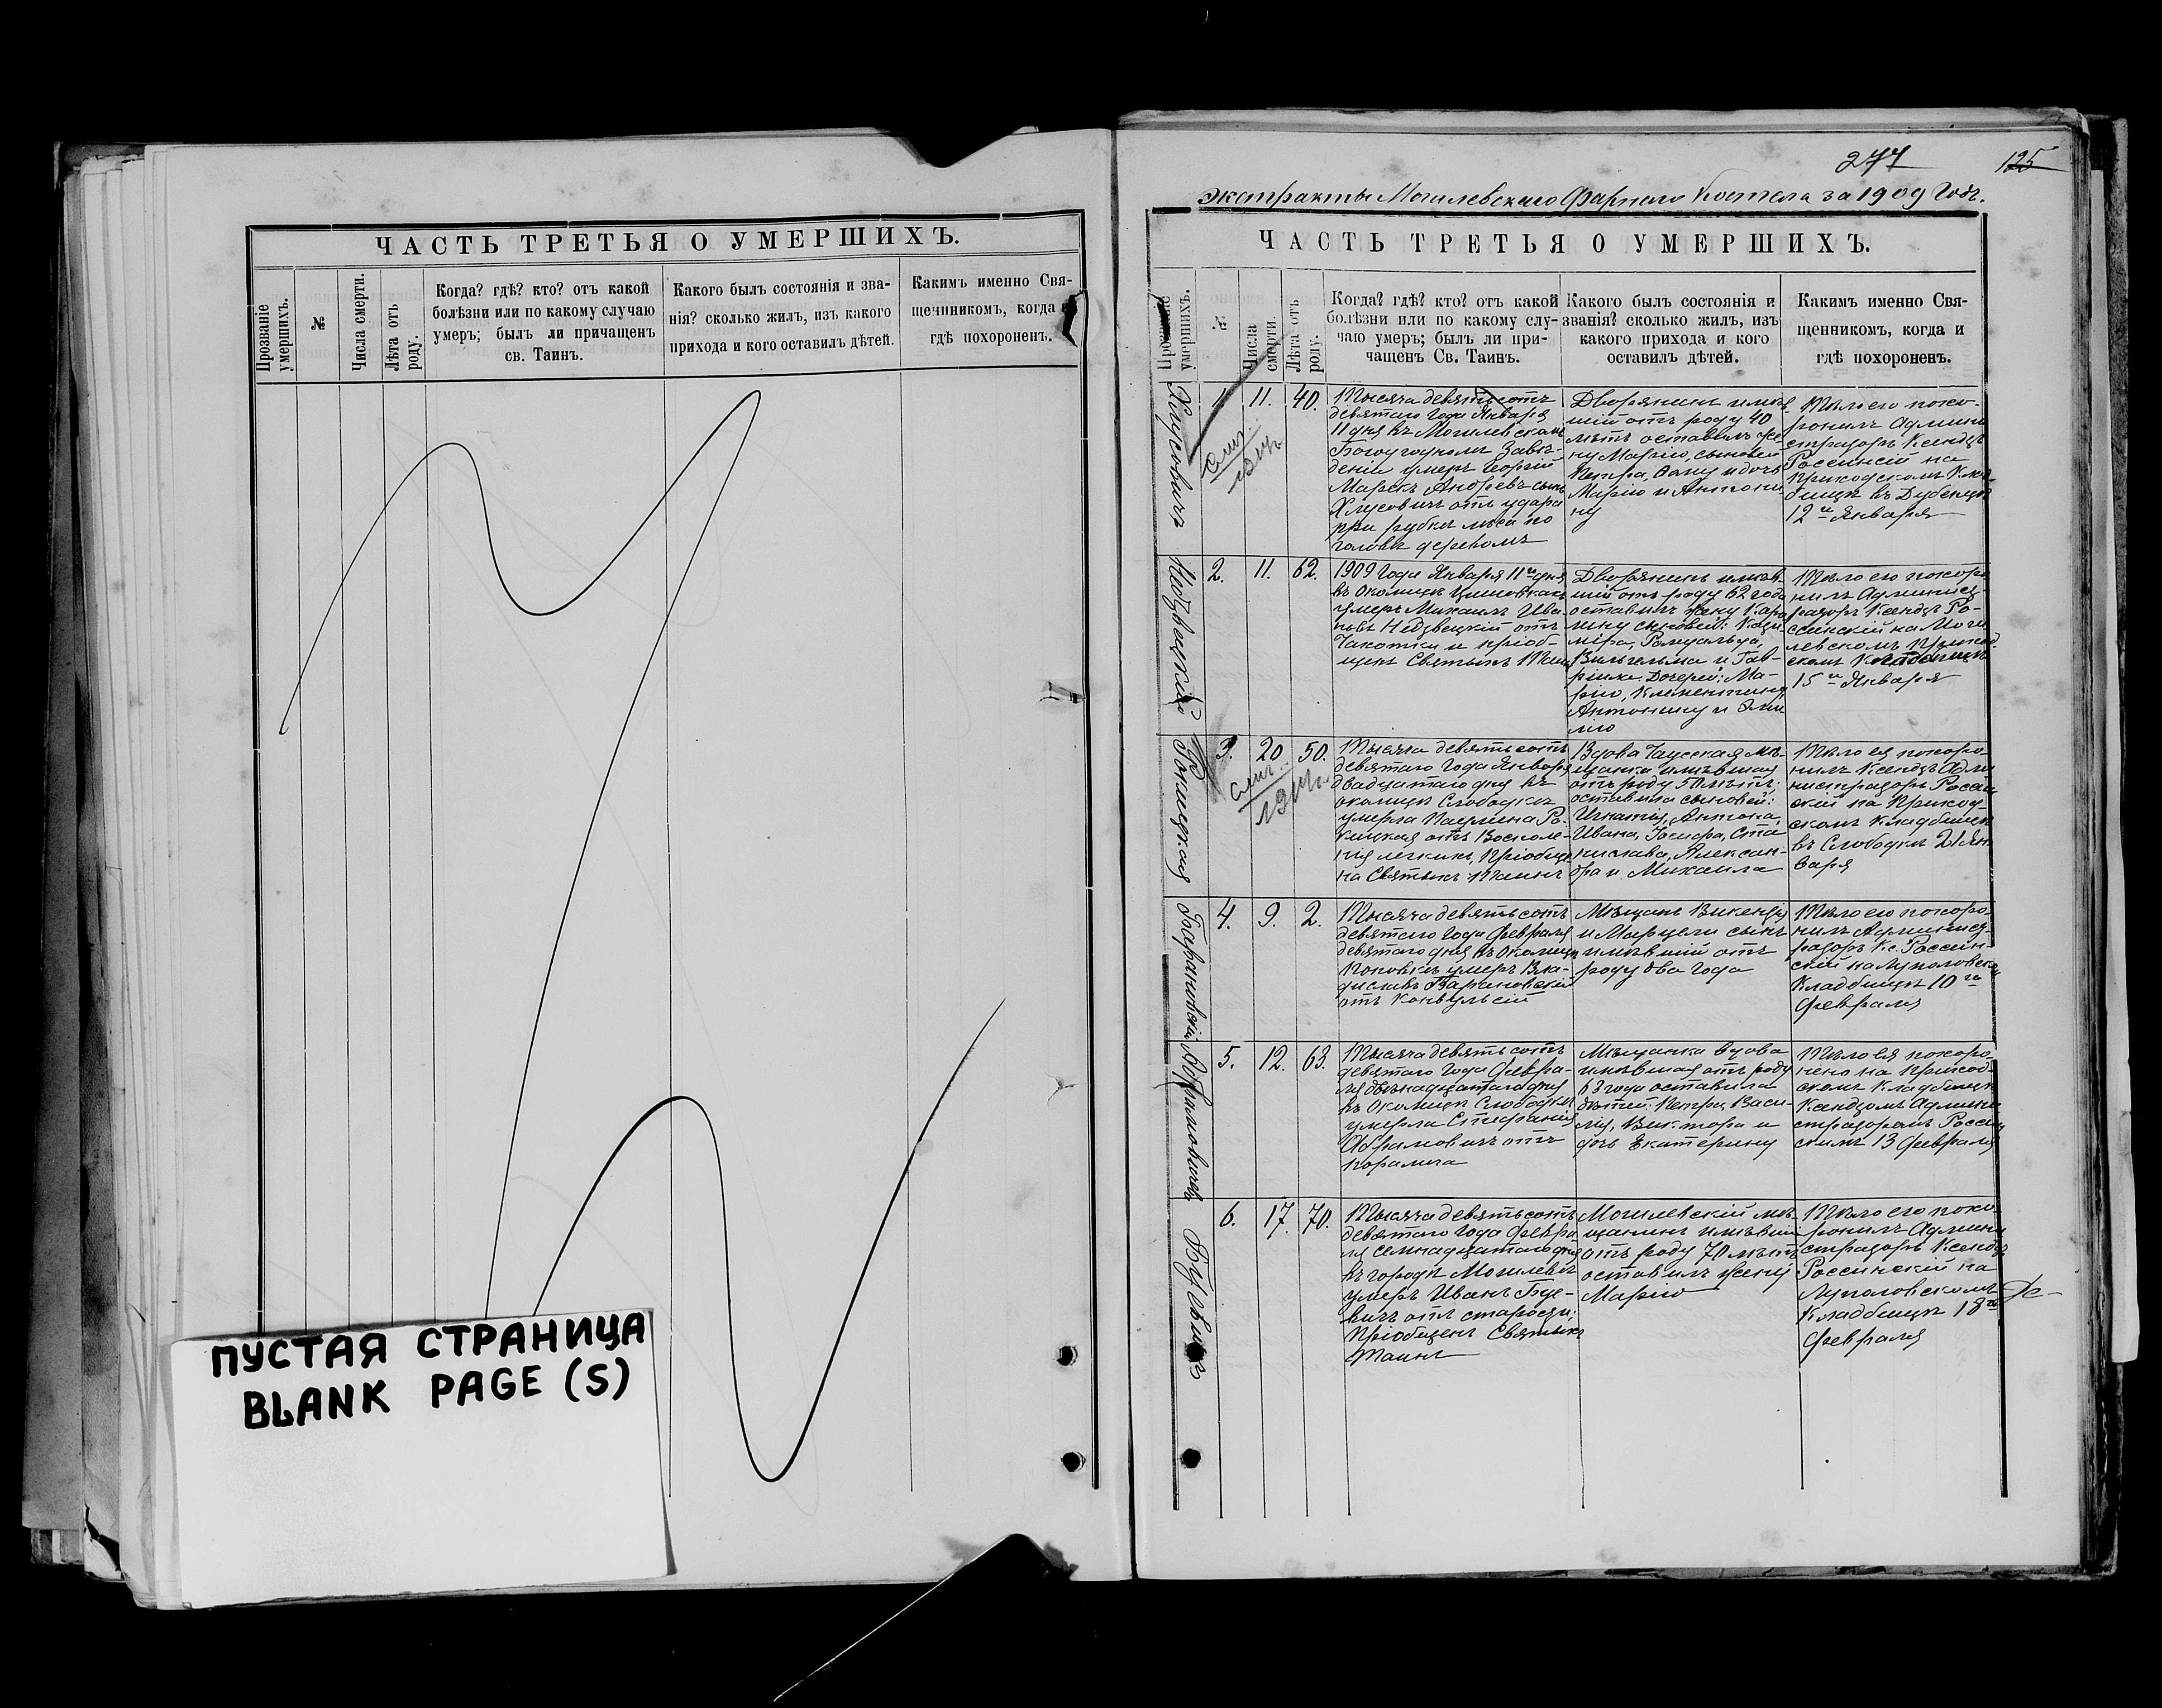 ЧАСТЬ ТРЕТЬЯ О УМЕРШИХЪ.
Прозваніе умершихъ.
№
Числа смерти.
Лѣта отъ роду.
Когда? гдѣ? кто? отъ какой
болѣзни или по какому случаю
умеръ; былъ ли причащенъ
св. Таинъ.
Какого былъ состоянія и зва-
нія? сколько жилъ, изъ какого
прихода и кого оставилъ дѣтей.
Какимъ именно Свя-
щенникомъ, когда
гдѣ похороненъ.
ПУСТАЯ СТРАНИЦА
BLANK PAGE (S)
277
125
Экстракты Могилевскаго Фарнаго Костела за 1909 Годъ.
ЧАСТЬ ТРЕТЬЯ О УМЕРШИХЪ.
Прозваніе умершихъ.
№
Числа смерти.
Лѣта отъ роду.
Когда? гдѣ? кто? отъ какой
болѣзни или по какому слу-
чаю умеръ; былъ ли при-
чащенъ Св. Таинъ.
Какого былъ состоянія и
званія? сколько жилъ, изъ
какого прихода и кого
оставилъ дѣтей.
Какимъ именно Свя-
щенникомъ, когда и
гдѣ похороненъ.
Хлусовичъ
1. 11. 40.
Тысяча девятьсотъ
девятаго Года Января
11 дня въ Могилевскомъ
Богоугодномъ Заве-
деніи умеръ Георгій
Маркъ Андреевъ сынъ
Хлусовичъ отъ удара
при рубкѣ лѣса по
головѣ деревомъ
Дворянинъ имѣв
шій отъ роду 40
лѣтъ оставилъ же
ну Марію, сыновей
Петра, дочь
Марію и Антони-
ну
Тѣло его похо-
ронилъ Админи
страторъ Ксендзъ
Россинскій на
Приходскомъ Клад-
бищѣ въ
12 Января
Недзвецкій
2. 11. 62.
1909 Года Января 11 дня
въ околицѣ
умеръ Михаилъ Ива-
новъ Недзвецкій отъ
Чахотки и пріоб-
щенъ Святыхъ Таинъ
Дворянинъ имѣв-
шій отъ роду 62 года
оставилъ жену Каро
лину сыновей: Кази-
міра, Ромуальда,
Вильгельма и Гав-
ріила. Дочерей: Ма-
рію, Клементину,
Антонину и Эми
лію
Тѣло его похоро
нилъ Админист-
раторъ Ксендзъ Ро-
ссинскій на Моги
левскомъ Приход
скомъ Кладбищѣ
15 Января
Рокицкая
3. 20 50.
Тысяча девятьсотъ
девятаго Года Января
двадцатаго дня въ
околицѣ Слободкѣ
умерла Паулина Ро-
кицкая отъ Воспале-
нія легкихъ, Пріобще
на Святыхъ Таинъ
Вдова Чаусская мѣ-
щанка имѣвшая
отъ роду 50 лѣтъ,
оставила сыновей:
Игнатія, Антона,
Ивана, Іосифа, Ста
нислава, Алексан-
дра и Михаила
Тѣло ея похоро-
нилъ Ксендзъ Адми
нистраторъ Россин
скій на Приход-
скомъ Кладбищѣ
въ Слободкѣ 21 Ян
варя
Барановскій
4. 9. 2.
Тысяча девятьсотъ
девятаго Года Февраля
девятаго дня въ околицѣ
Поповкѣ умеръ Вла-
диславъ Барановскій
отъ Конвульсій
Мѣщанъ Викентія
и Марцели сынъ
имѣвшій отъ
роду два года
Тѣло его похоро-
нилъ Админист-
раторъ Кс. Россин-
скій на Луполовском
Кладбищѣ 10 го
Февраля
5. 12. 63.
Тысяча девятьсотъ
девятаго Года Февра-
ля двѣнадцатаго дня
въ Околицѣ Слободкѣ
умерла Стефанія
Абрамовичъ отъ
паралича
Мѣщанка вдова
имѣвшая отъ роду
63 года оставила
дѣтей: Петра, Васи-
лія, Виктора и
дочь Екатерину
Тѣло ея похоро
нено на Приход-
скомъ Кладбищѣ
Ксендзомъ Админи
страторомъ Россин
скимъ 13 Февраля
Буевичъ
6. 17. 70.
Тысяча девятьсотъ
девятаго Года Февра
ля семнадцатаго дня
въ городѣ Могилевѣ
умеръ Иванъ Буе-
вичъ отъ старости;
Пріобщенъ Святыхъ
Таинъ
Могилевскій мѣ-
щанинъ имѣвшій
отъ роду 70 лѣтъ
оставилъ жену
Марію
Тѣло его похо
ронилъ Админи
страторъ Ксендзъ
Россинскій на
Луполовскомъ
Кладбищѣ 18 го
Февраля